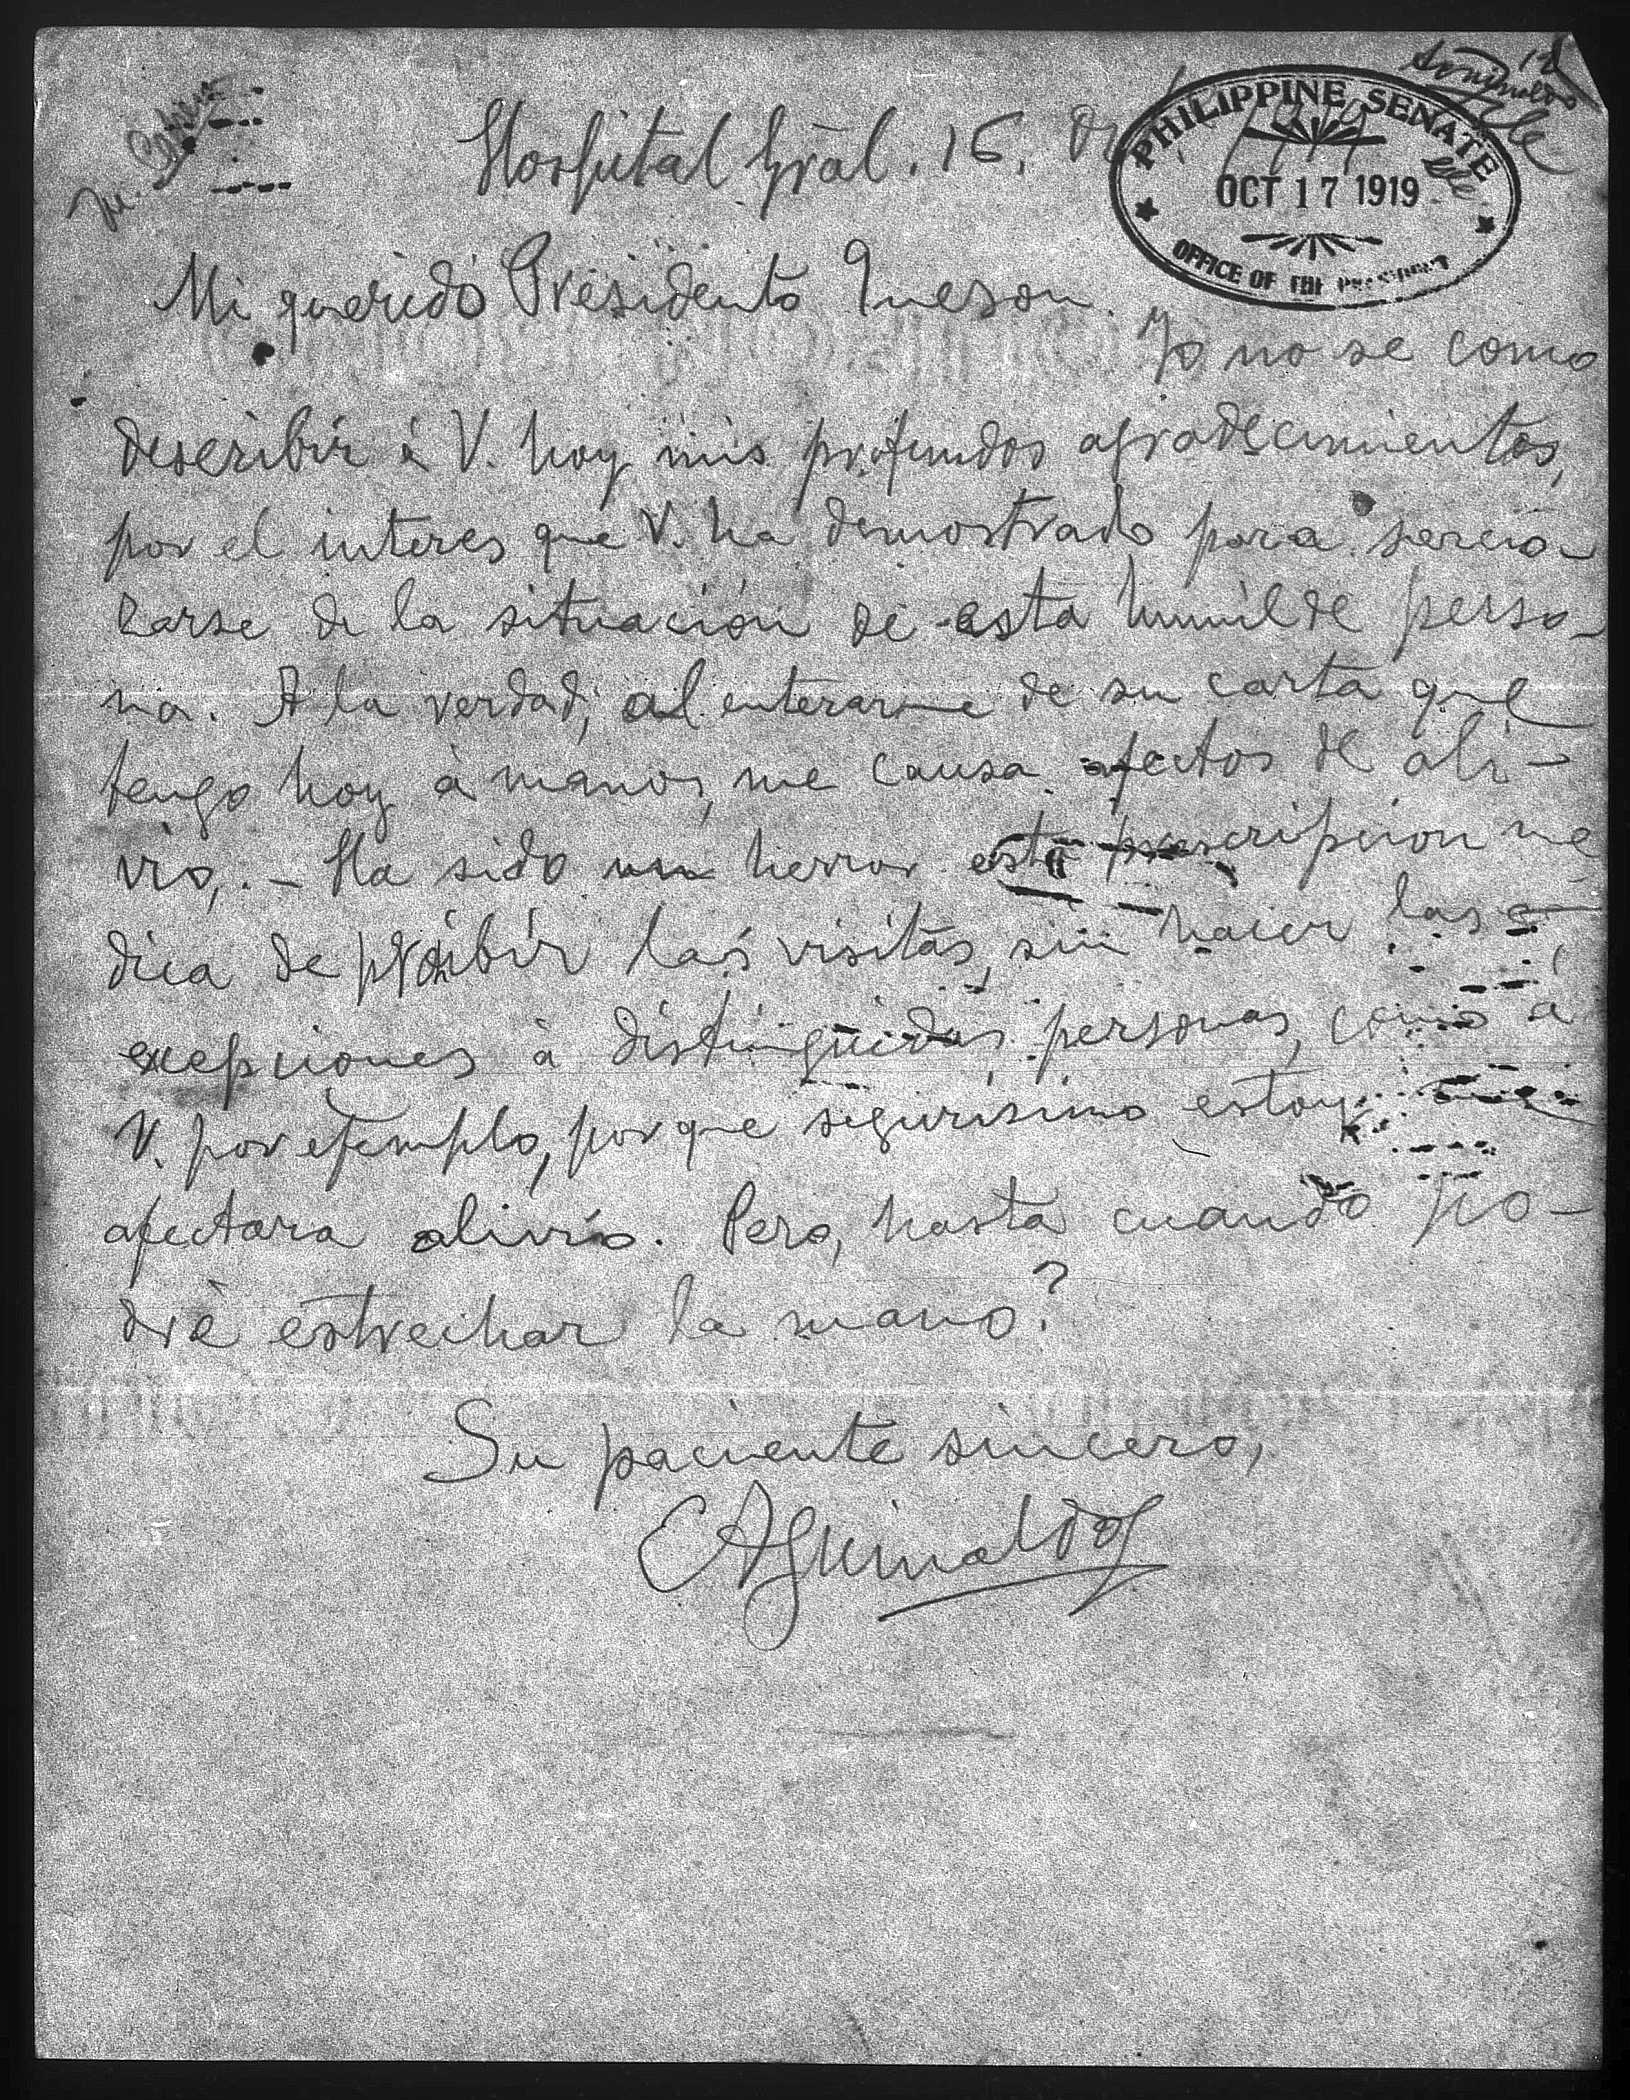 Hospital Gràl. 15, 1919
PHILIPPINE SENATE
OCT 17 1919
OFFICE OF THE PRESIDENT
Mi querido Presidente Quezon.
Yo no se como
describir à V. hoy mis profundos agradecimientos,
por el interes que V. ha demostrado para sercio-
rarse de la situación de esta humilde perso-
na. A la verdad, al enterarme de su carta que
tengo hoy à manos, me causa afectos de ali-
vio,. - Ha sido un herror esta prescripcion me
dica de proibir las visitas, sin hacer las
excepciones à distinguidas personas, como à
V. por ejemplo, porque segurisimo estoy me
afectara alivio. Pero, hasta cuando po-
drè estrechar la mano?
Su paciente sincero,
EAguinaldo